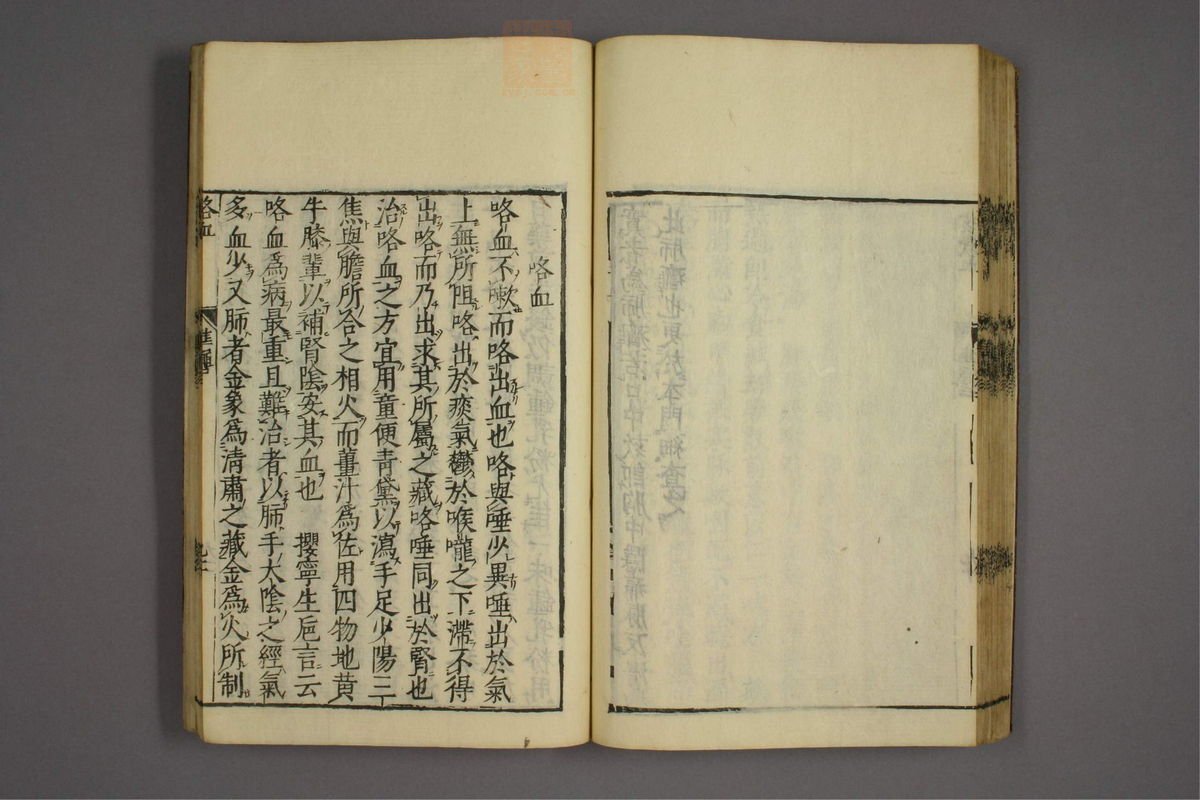 咯血
咯血不嗽而咯出血也咯與唾少異唾出於氣
上無所阻咯出於痰氣鬱於喉嚨之下滯不得
出咯而乃出求其所屬之藏咯唾同出於腎也
治咯血之方宜用童便青黛以瀉手足少陽三
焦與膽所合之相火而薑汁爲佐用四物地黄
牛膝輩以補腎陰安其血也 攖寧生巵言云
咯血爲病最重且難治者以肺手太陰之經氣
多血少又肺者金象爲清肅之藏金爲火所制
咯血